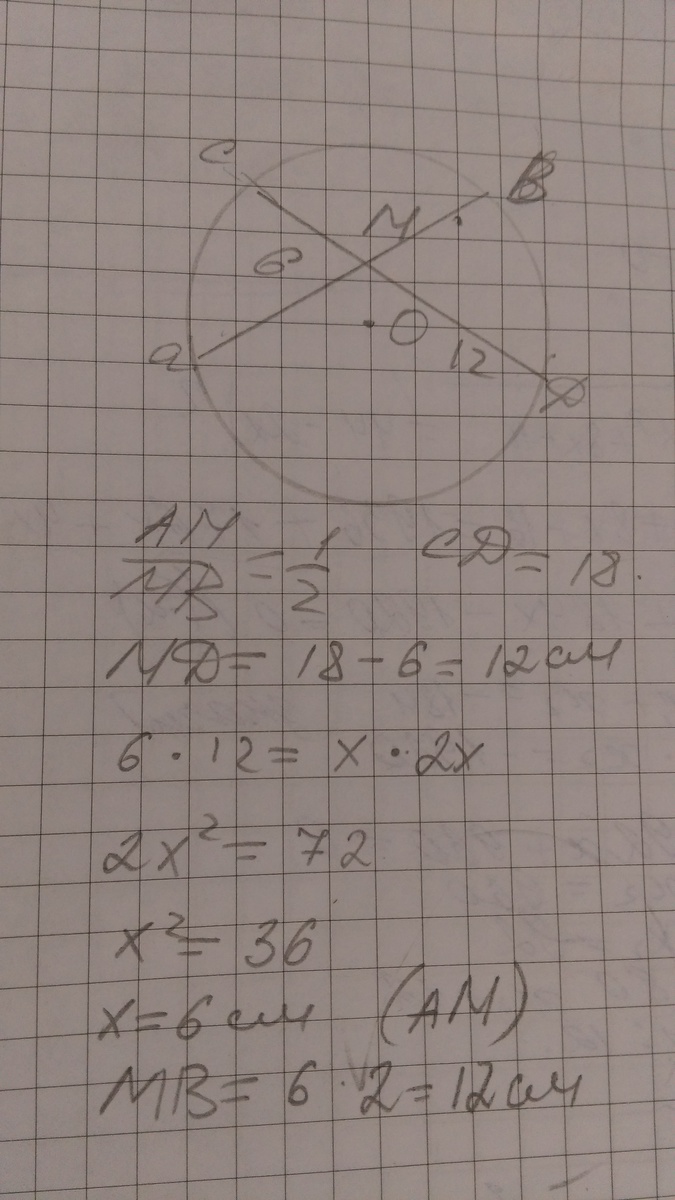 C
B
M
6
a
O
12
D
AM/MB = 1/2 CD = 18.
MD = 18 - 6 = 12 см
6 · 12 = x · 2x
2x² = 72
x² = 36
x = 6 см (AM)
MB = 6 · 2 = 12 см